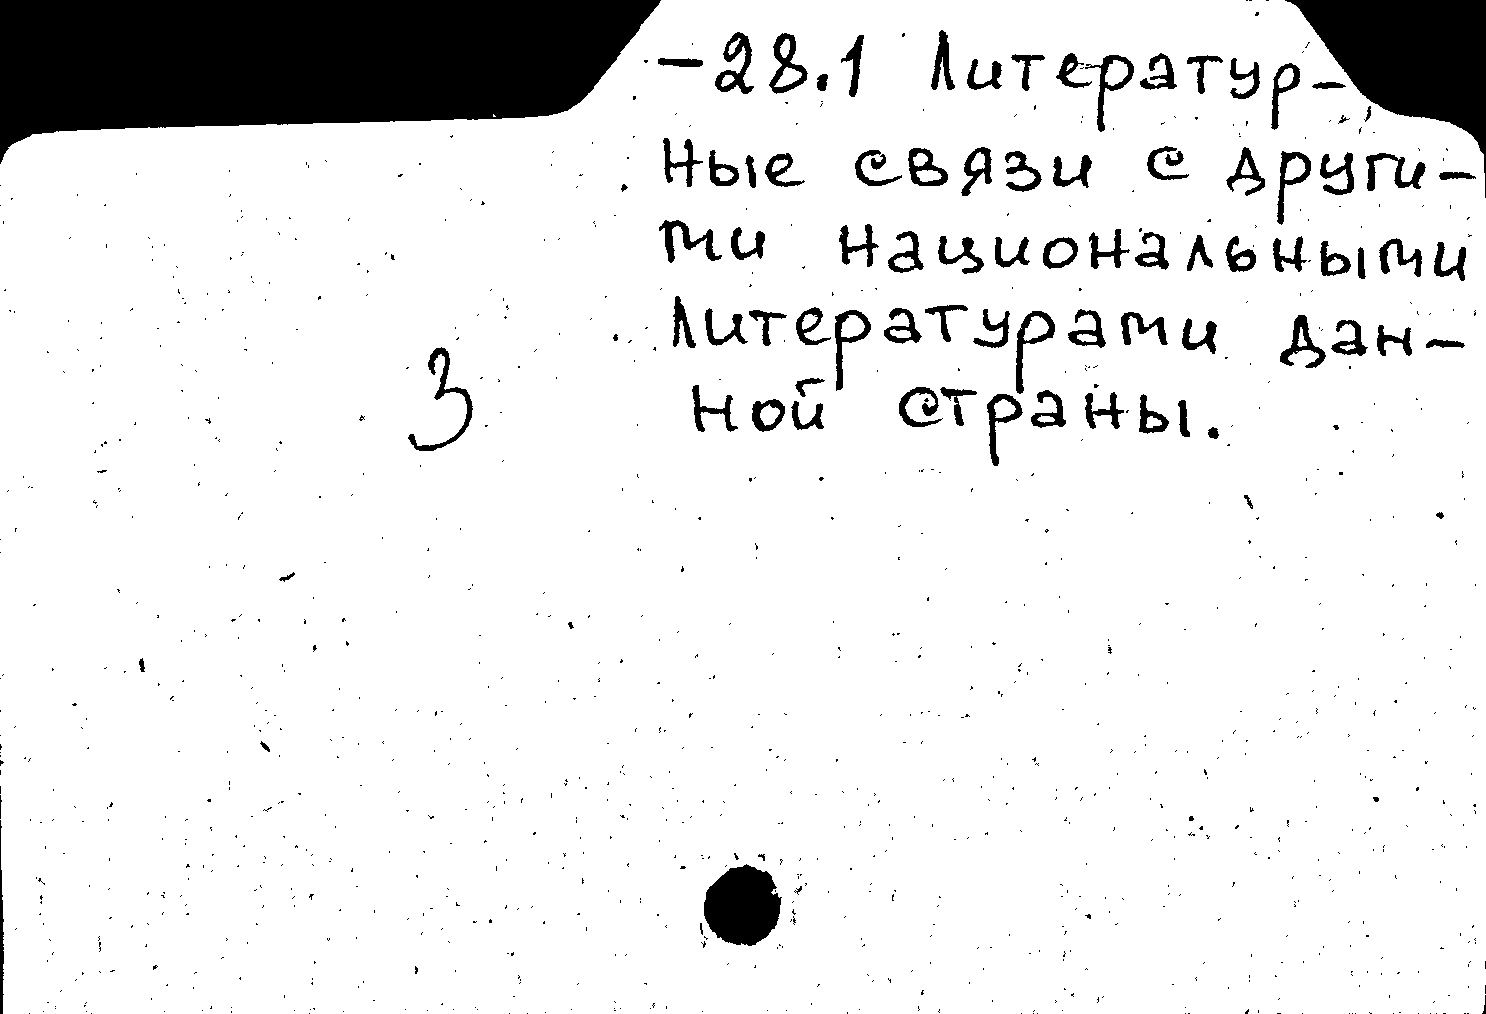 -28.1 Литератур-
ные связи с други-
ми национальными
литературами дан-
3
ной страны.